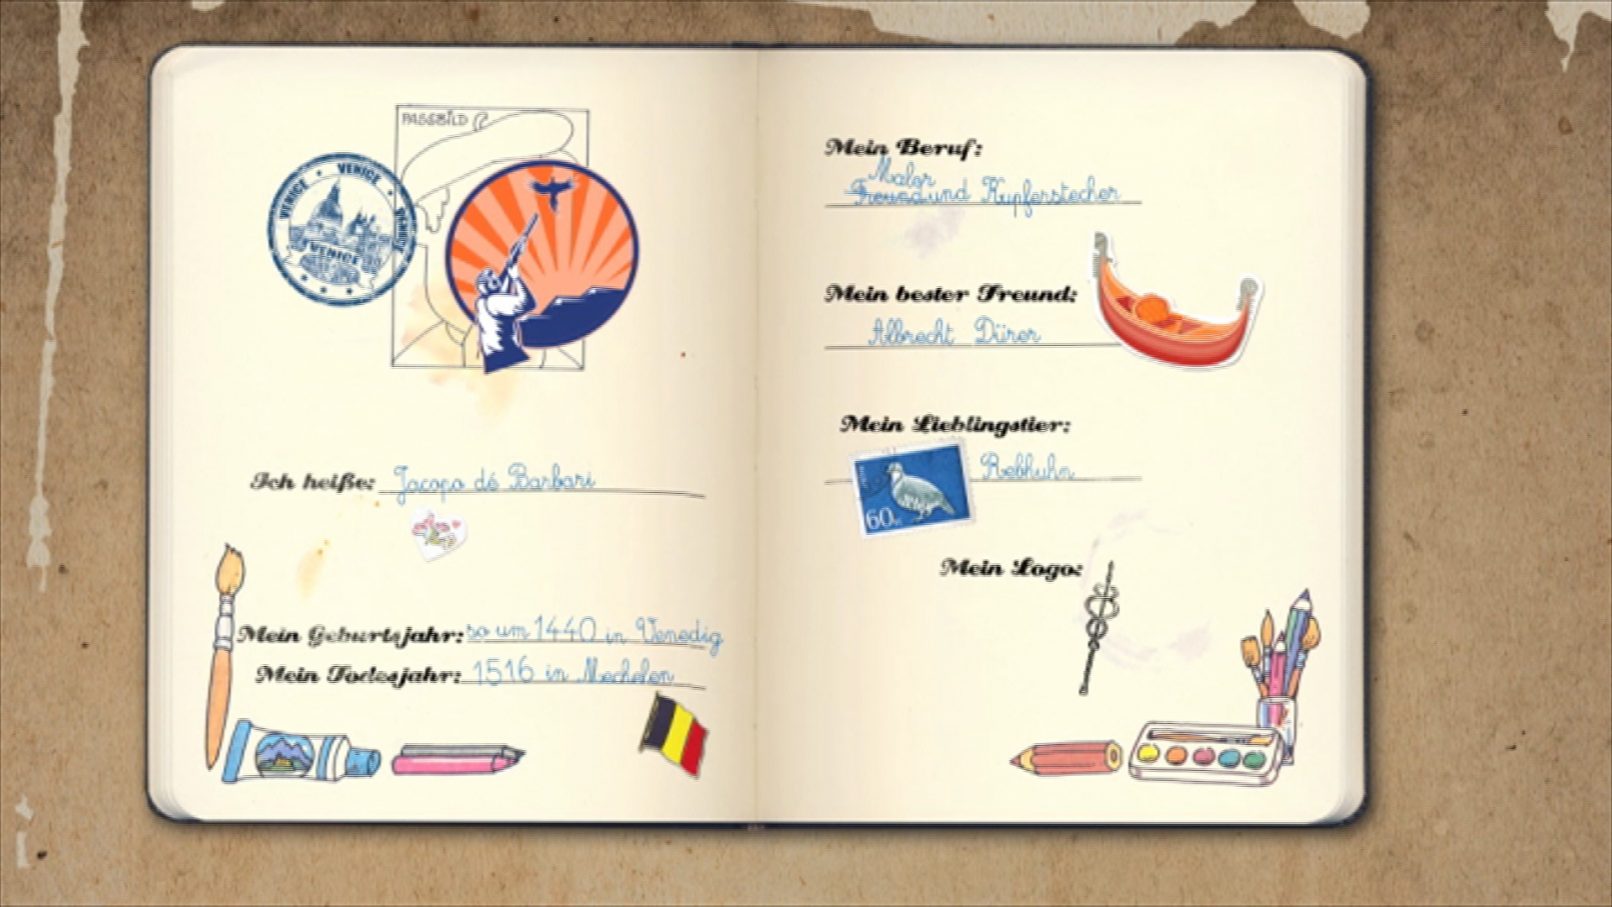 PASSBILD
VENICE • VENICE • VENICE
VENICE
Ich heiße: Jacopo dé Barbari
Mein Geburtsjahr: so um 1440 in Venedig
Mein Todesjahr: 1516 in Mechelen
Mein Beruf:
Maler
Freund und Kupferstecher
Mein bester Freund:
Albrecht Dürer
Mein Lieblingstier:
60
Rebhuhn
Mein Logo: